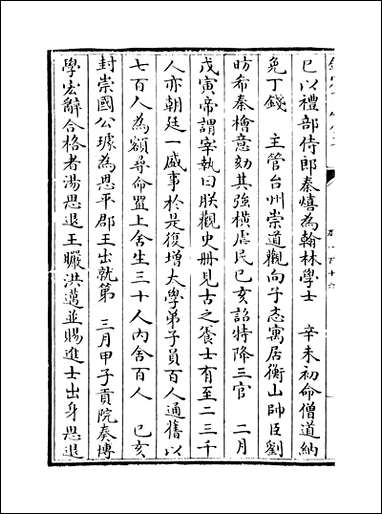 巳以禮部侍郎秦熺為翰林學士　辛未初命僧道納
免丁錢　主管台州崇道觀向子忞寓居衡山帥臣劉
昉希秦檜意劾其強橫虐民己亥詔特降三官　二月
戊寅帝謂宰執曰朕觀史冊見古之養士有至二三千
人亦朝廷一盛事於是復增太學弟子員百人通舊以
七百人為額尋命置上舍生三十人內舍百人　己亥
封崇國公璩為恩平郡王出就第　三月甲子貢院奏博
學宏辭合格者湯思退王曮洪邁並賜進士出身思退